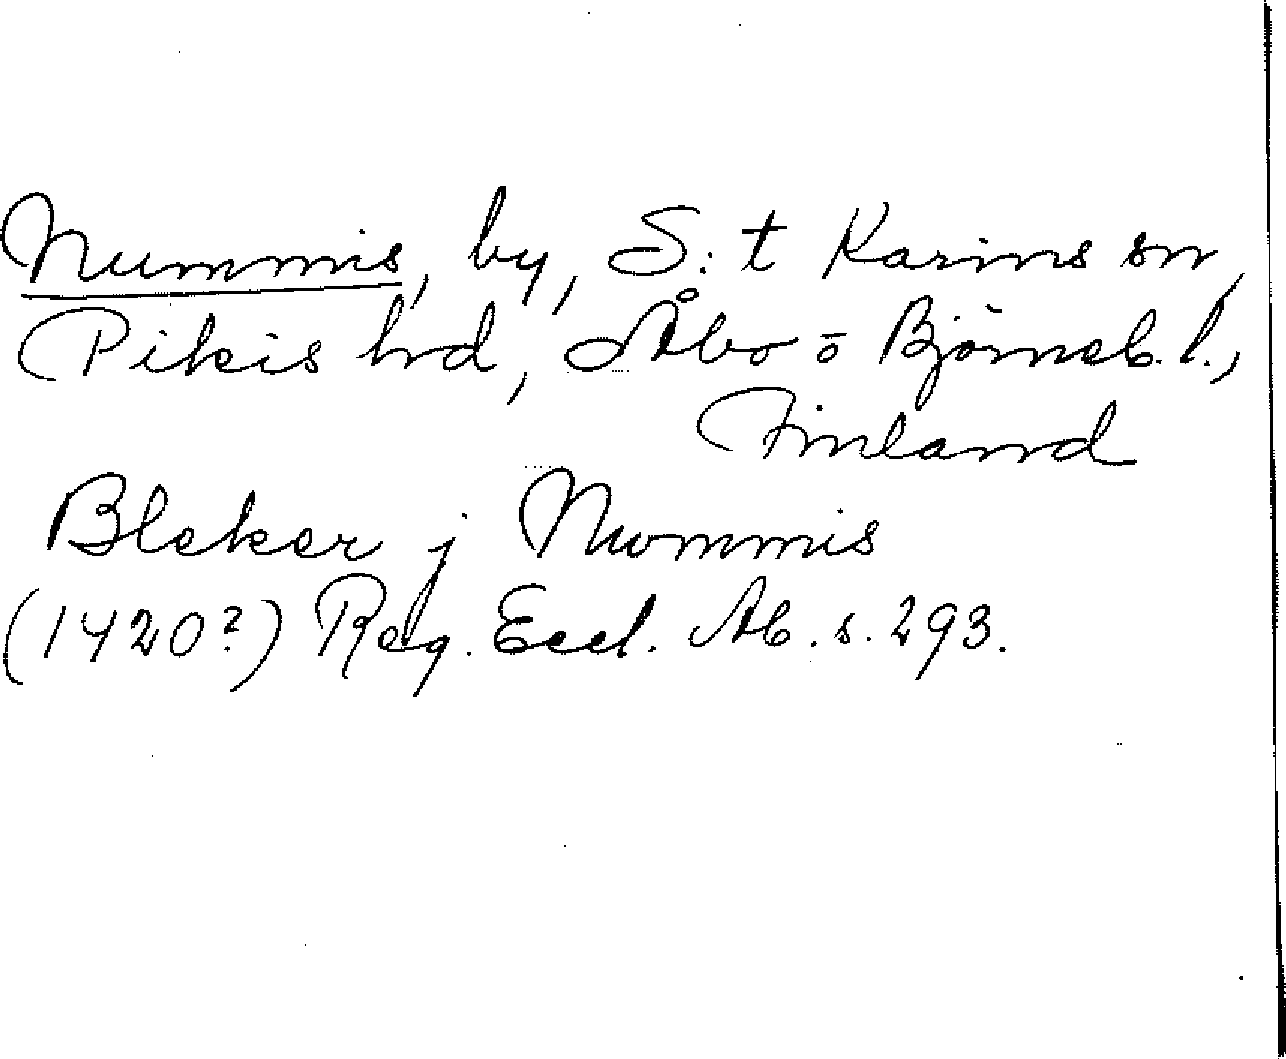 Nummis, by, S:t Karins sn,
Pikis hrd, Åbo o Björneb. l.,
Finland
Bleker j Nommis
(1420?) Reg. Eccl. Ab. s. 293.